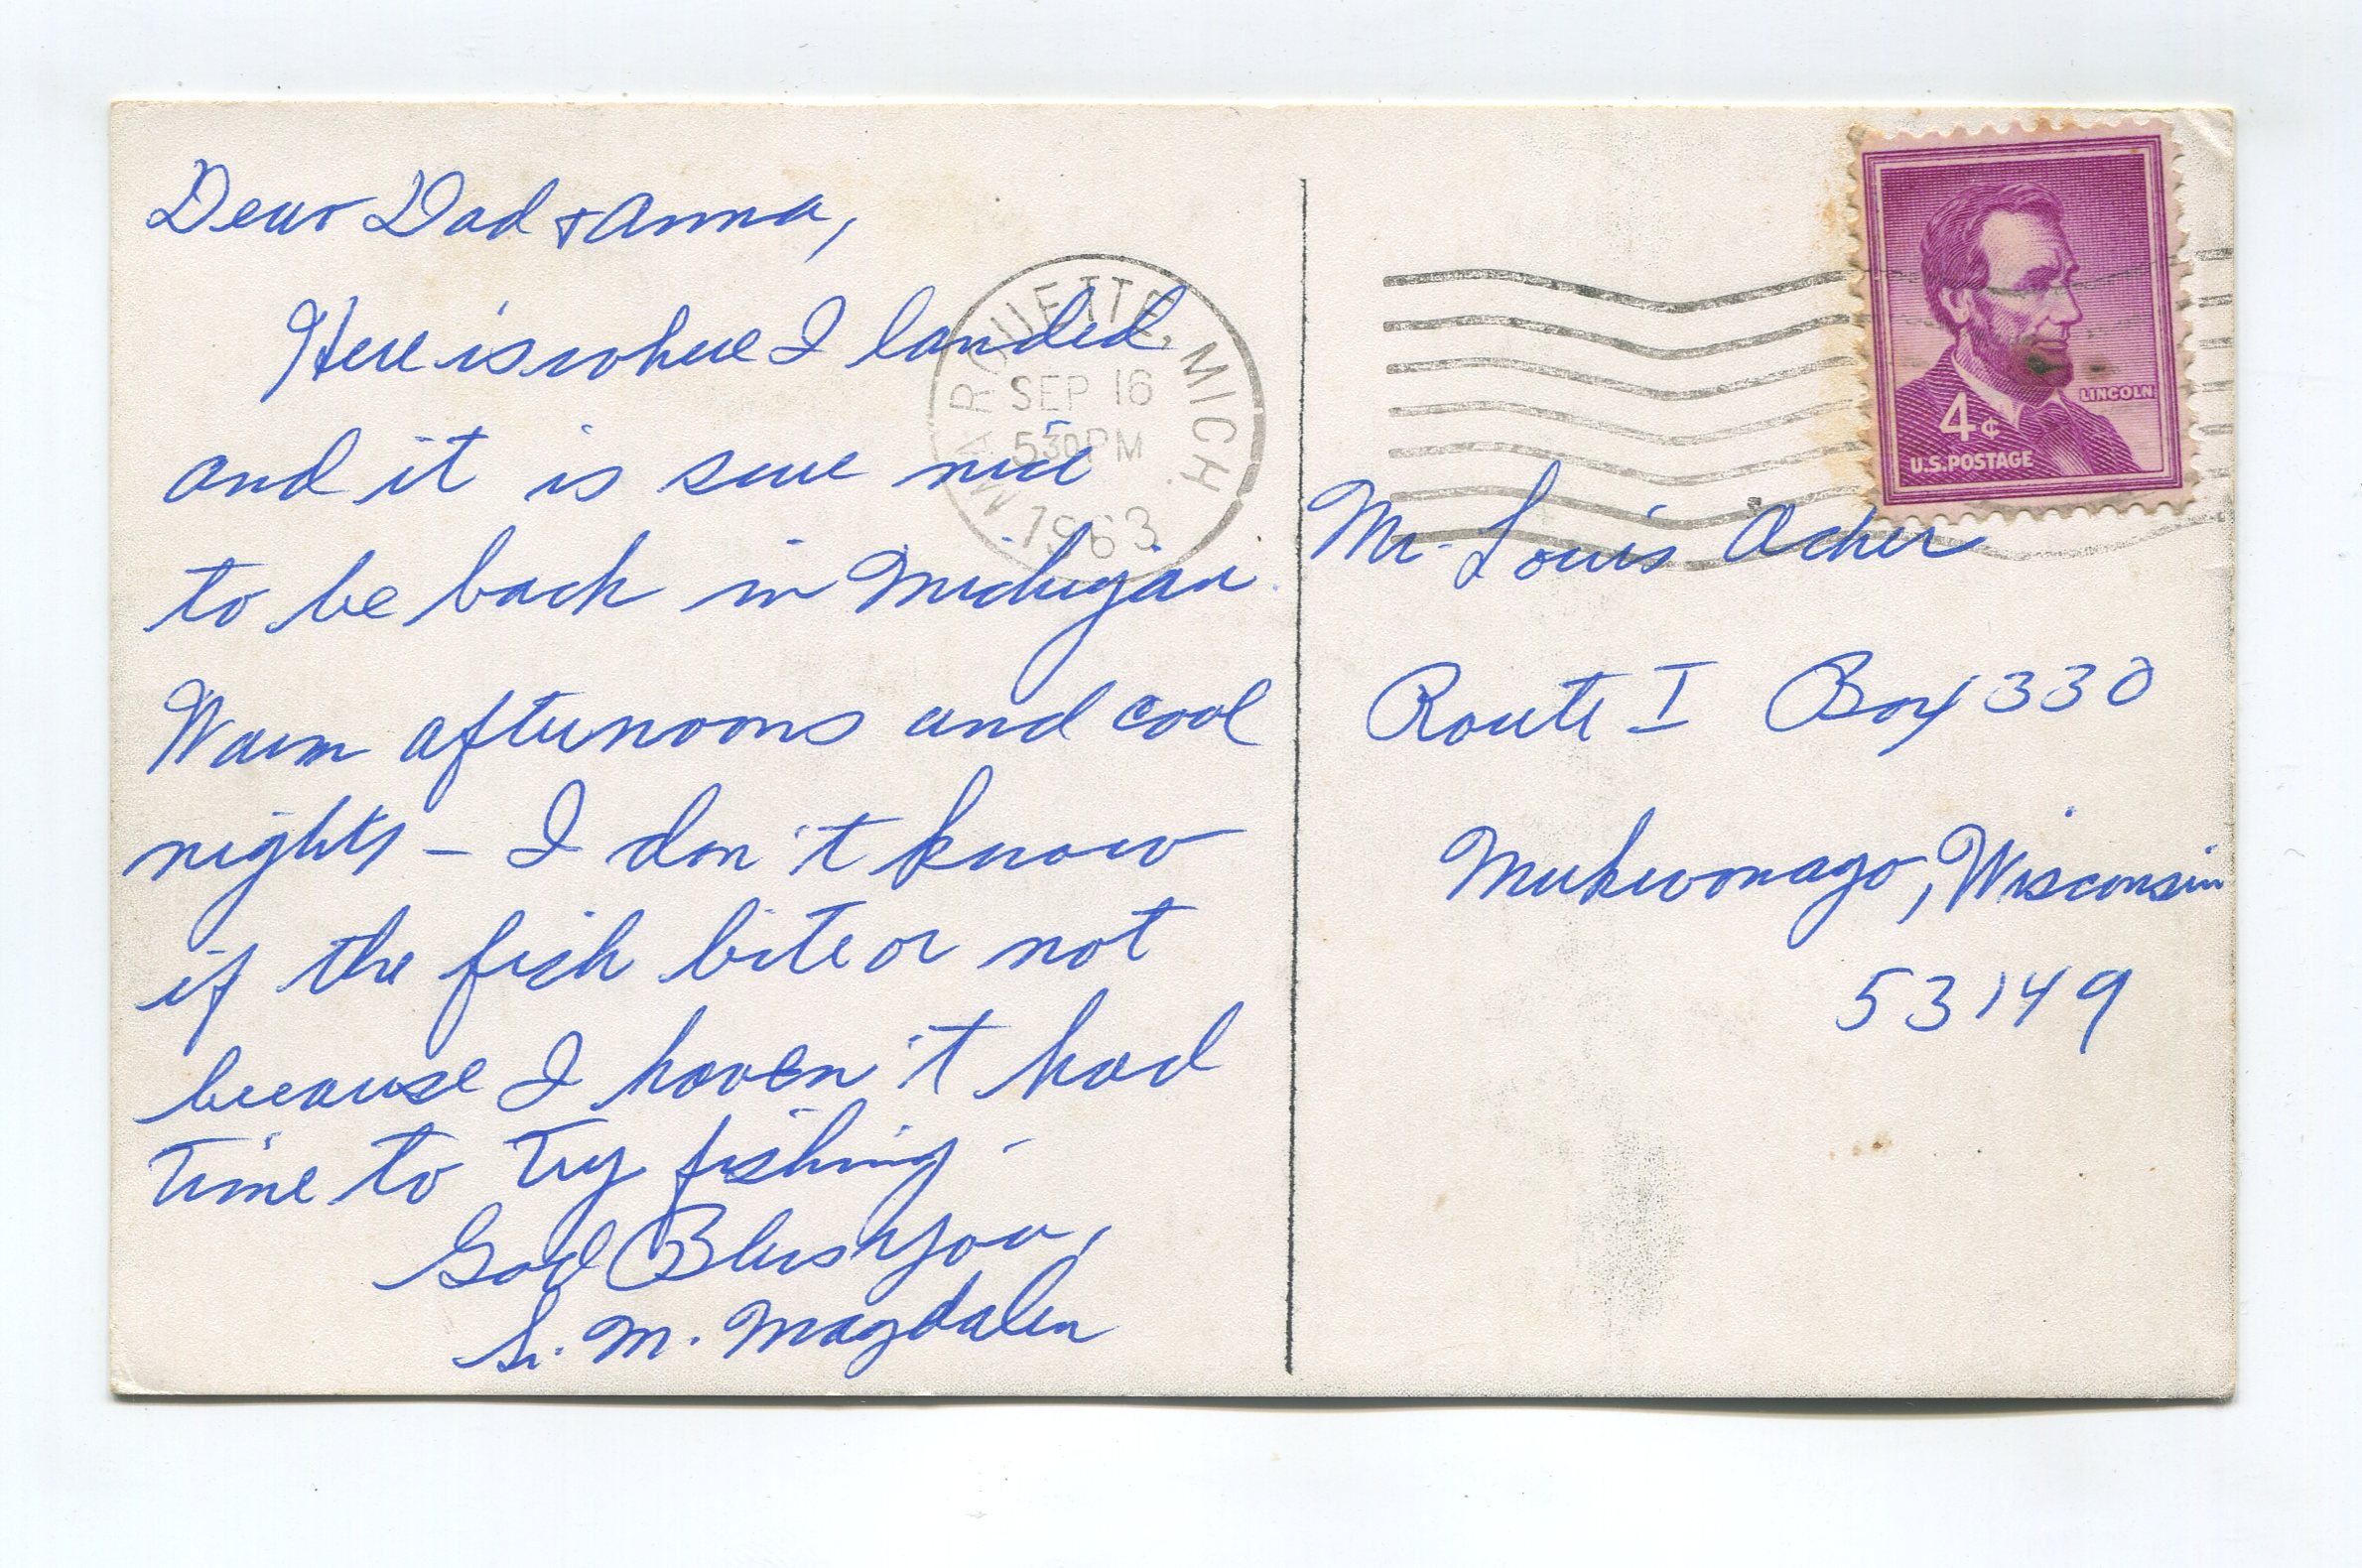 Dear Dad + Anna,
Here is where I landed
and it is sure nice
to be back in Michigan.
Warm afternoons and cool
nights – I don't know
if the fish bite or not
because I haven't had
time to try fishing -
God Bless you,
S. M. Magdalen
MARQUETTE, MICH.
SEP 16
530 PM
1963
LINCOLN
4¢
U.S. POSTAGE
Mr. Louis Acker
Route I Box 330
Mukwonago, Wisconsin
53149